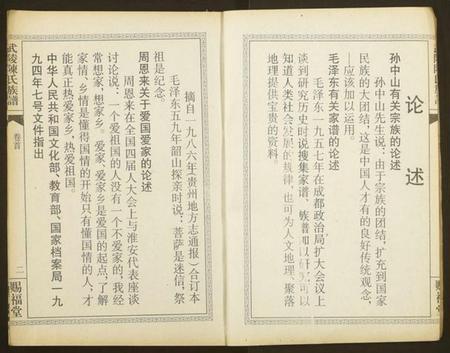 论述
孙中山有关宗族的论述
孙中山先生说：由于宗族的团结，扩充到国家
民族的大团结，这是中国人才有的良好传统观念，
应该加以运用。
毛泽东有关家谱的论述
毛泽东一九五七年在成都政治局扩大会议上
谈到研究历史时说搜集家谱、族谱加以研究，可以
知道人类社会发展的规律，也可为人文地理、聚落
地理提供宝贵的资料。
摘自一九八六年《贵州地方志通报》合订本
毛泽东五九年韶山探亲时说：菩萨是迷信，祭
祖是纪念。
周恩来关于爱国爱家的论述
周恩来在全国四届人大会上与淮安代表座谈
讨论说：一个爱祖国的人没有一个不爱家的，我经
常想家、想家乡。爱家、爱家乡是爱国的起点，了解
家情、乡情是懂得国情的开始只有懂国情的人，才
能真正热爱家乡、热爱祖国。
中华人民共和国文化部、教育部、国家档案局一九
九四年七号文件指出
武陵陳氏族譜
卷首
二
赐福堂